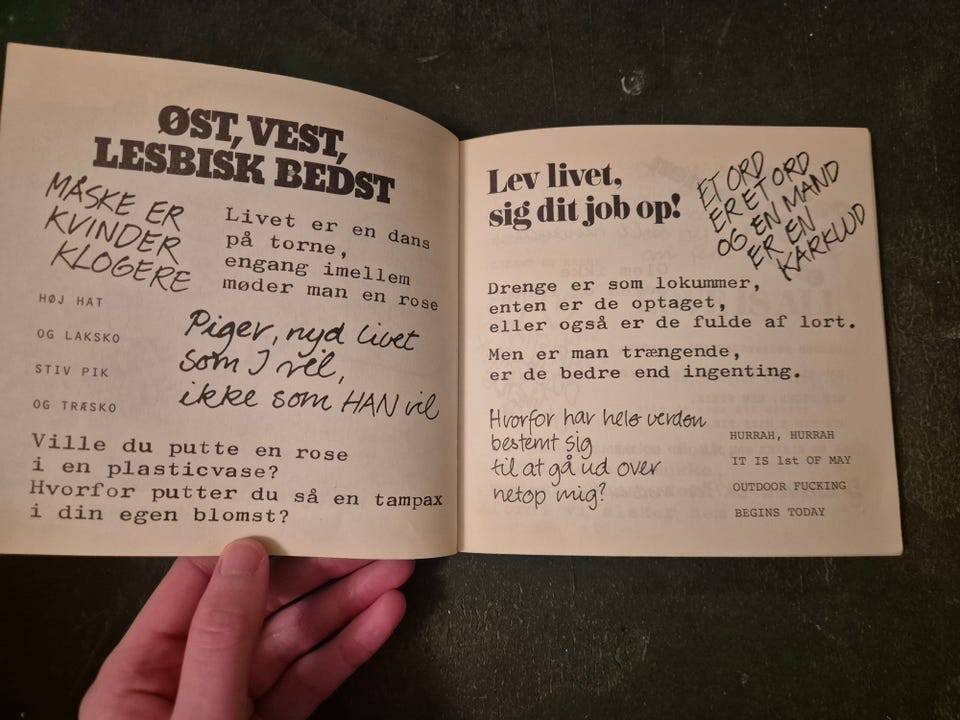 ØST, VEST,
LESBISK BEDST
MÅSKE ER
KVINDER
KLOGERE
Livet er en dans
på torne,
engang imellem
møder man en rose
HØJ HAT
OG LAKSKO
STIV PIK
OG TRÆSKO
Piger, nyd livet
som I vil,
ikke som HAN vil
Ville du putte en rose
i en plasticvase?
Hvorfor putter du så en tampax
i din egen blomst?
Lev livet,
sig dit job op!
ET ORD
ER ET ORD
OG EN MAND
ER EN
KARKLUD
Drenge er som lokummer,
enten er de optaget,
eller også er de fulde af lort.
Men er man trængende,
er de bedre end ingenting.
Hvorfor har hele verden
bestemt sig
til at gå ud over
netop mig?
HURRAH, HURRAH
IT IS 1st OF MAY
OUTDOOR FUCKING
BEGINS TODAY